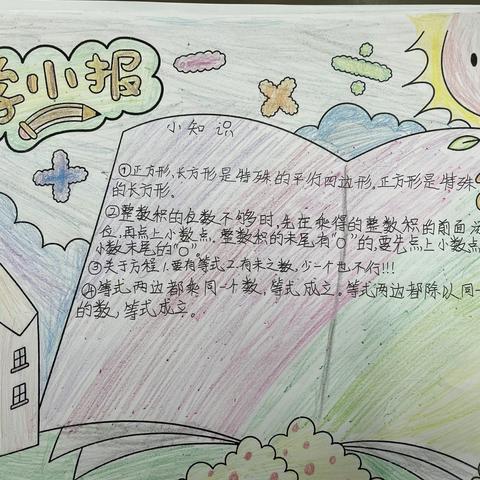 学小报
小知识
①正方形,长方形是特殊的平行四边形,正方形是特殊
的长方形。
②整数积的位数不够时,先在乘得的整数积的前面
位,再点上小数点。整数积的末尾有"0"的,要先点上小数点
小数末尾的"0"。
③关于方程1.要有等式2.有未之数,少一个也不行!!!
④等式两边都乘同一个数,等式成立。等式两边都除以同一
的数,等式成立。